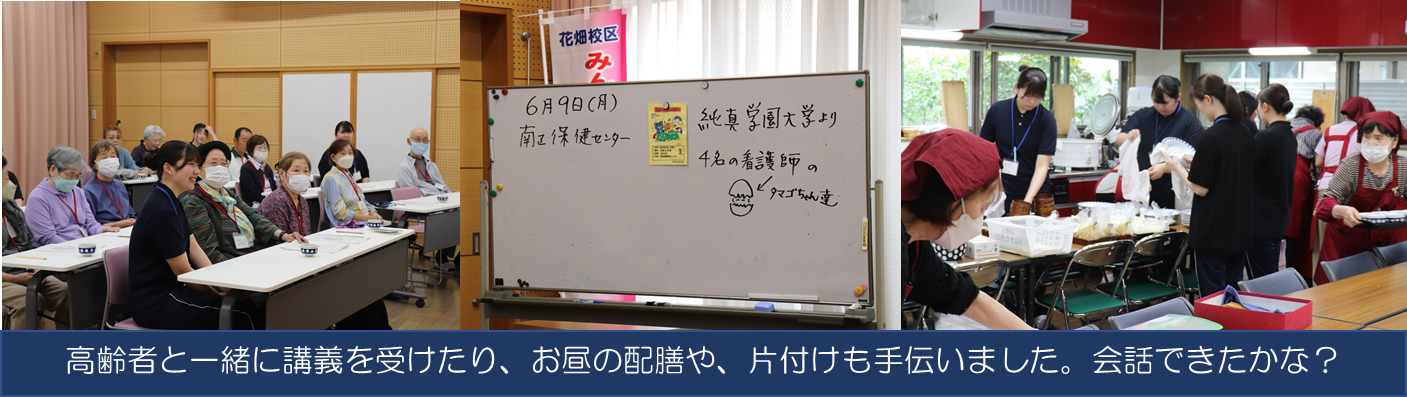 花畑校区
みん
6月9日(月)
南区保健センター
純真学園大学より
4名の看護師の
タマゴちゃん達
高齢者と一緒に講義を受けたり、お昼の配膳や、片付けも手伝いました。会話できたかな？